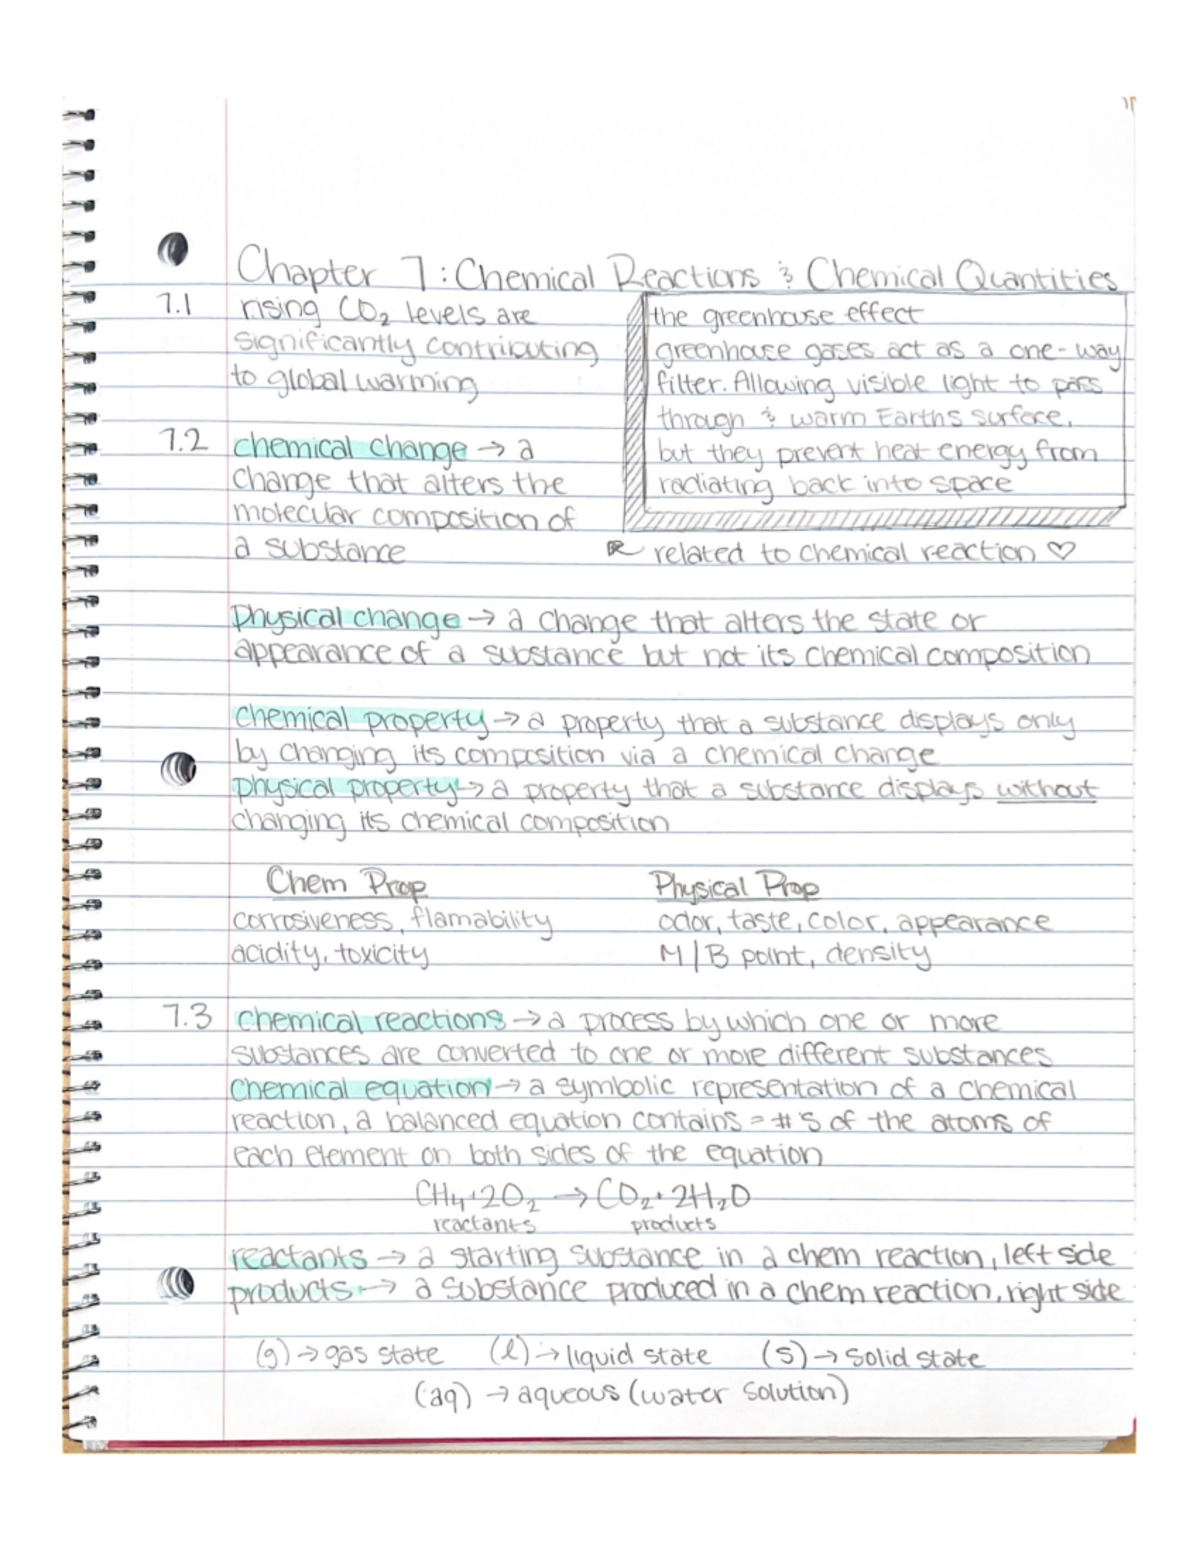 Chapter 7: Chemical Reactions & Chemical Quantities
7.1 rising CO₂ levels are
significantly contributing
to global warming
the greenhouse effect
greenhouse gases act as a one-way
filter. Allowing visible light to pass
through & warm Earths surface,
but they prevent heat energy from
radiating back into space
related to chemical reaction ♡
7.2 chemical change → a
change that alters the
molecular composition of
a substance
Physical change → a change that alters the state or
appearance of a substance but not its chemical composition
chemical property → a property that a substance displays only
by changing its composition via a chemical change
physical property → a property that a substance displays without
changing its chemical composition
Chem Prop Physical Prop
corrosiveness, flamability odor, taste, color, appearance
acidity, toxicity M/B point, density
7.3 chemical reactions → a process by which one or more
substances are converted to one or more different substances
Chemical equation → a symbolic representation of a chemical
reaction, a balanced equation contains = #'s of the atoms of
each element on both sides of the equation
CH₄ + 2O₂ → CO₂ + 2H₂O
reactants products
reactants → a starting substance in a chem reaction, left side
products → a substance produced in a chem reaction, right side
(g) → gas state (l) → liquid state (s) → solid state
(aq) → aqueous (water solution)